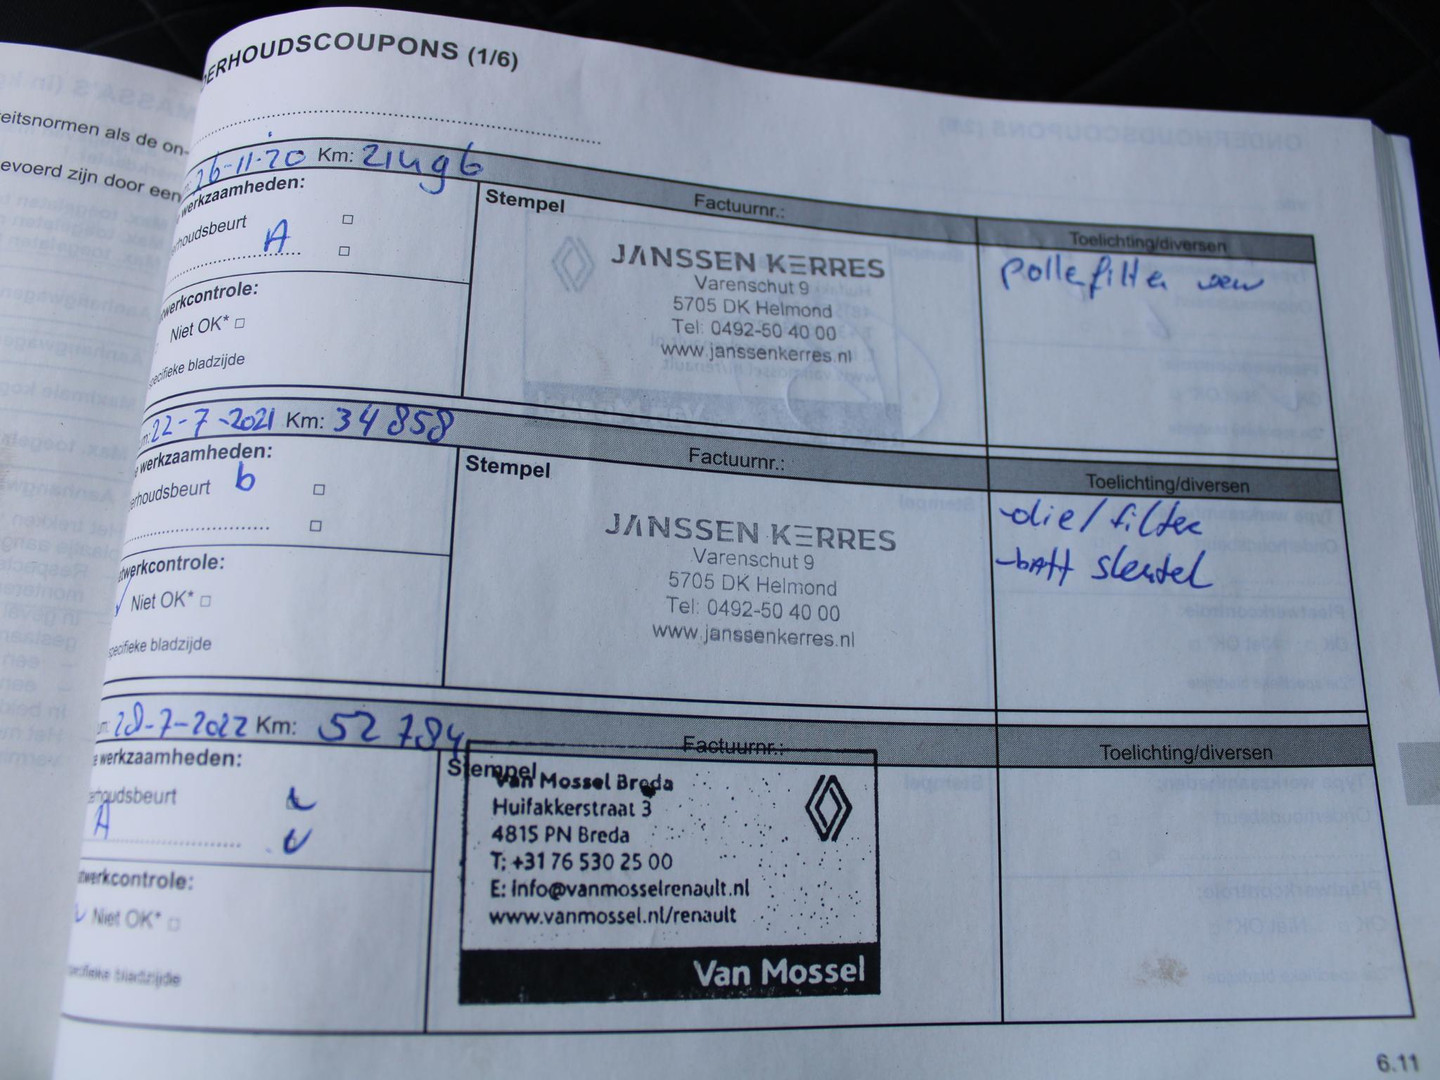 ERHOUDSCOUPONS (1/6)
eitsnormen als de on-
evoerd zijn door een
26-11-20 Km: 21496
werkzaamheden:
houdsbeurt
A
werkcontrole:
Niet OK*
specifieke bladzijde
Stempel
Factuurnr.:
JANSSEN KERRES
Varenschut 9
5705 DK Helmond
Tel: 0492-50 40 00
www.janssenkerres.nl
Toelichting/diversen
22-7-2021 Km: 34858
werkzaamheden:
erhoudsbeurt b
werkcontrole:
Niet OK*
specifieke bladzijde
Stempel
Factuurnr.:
JANSSEN KERRES
Varenschut 9
5705 DK Helmond
Tel: 0492-50 40 00
www.janssenkerres.nl
Toelichting/diversen
-olie/filter
-batt sleutel
28-7-2022 Km: 52784
werkzaamheden:
erhoudsbeurt
A
werkcontrole:
Niet OK*
specifieke bladzijde
Stempel
Factuurnr.:
Van Mossel Breda
Huifakkerstraat 3
4815 PN Breda
T: +31 76 530 25 00
E: info@vanmosselrenault.nl
www.vanmossel.nl/renault
Van Mossel
Toelichting/diversen
6.11